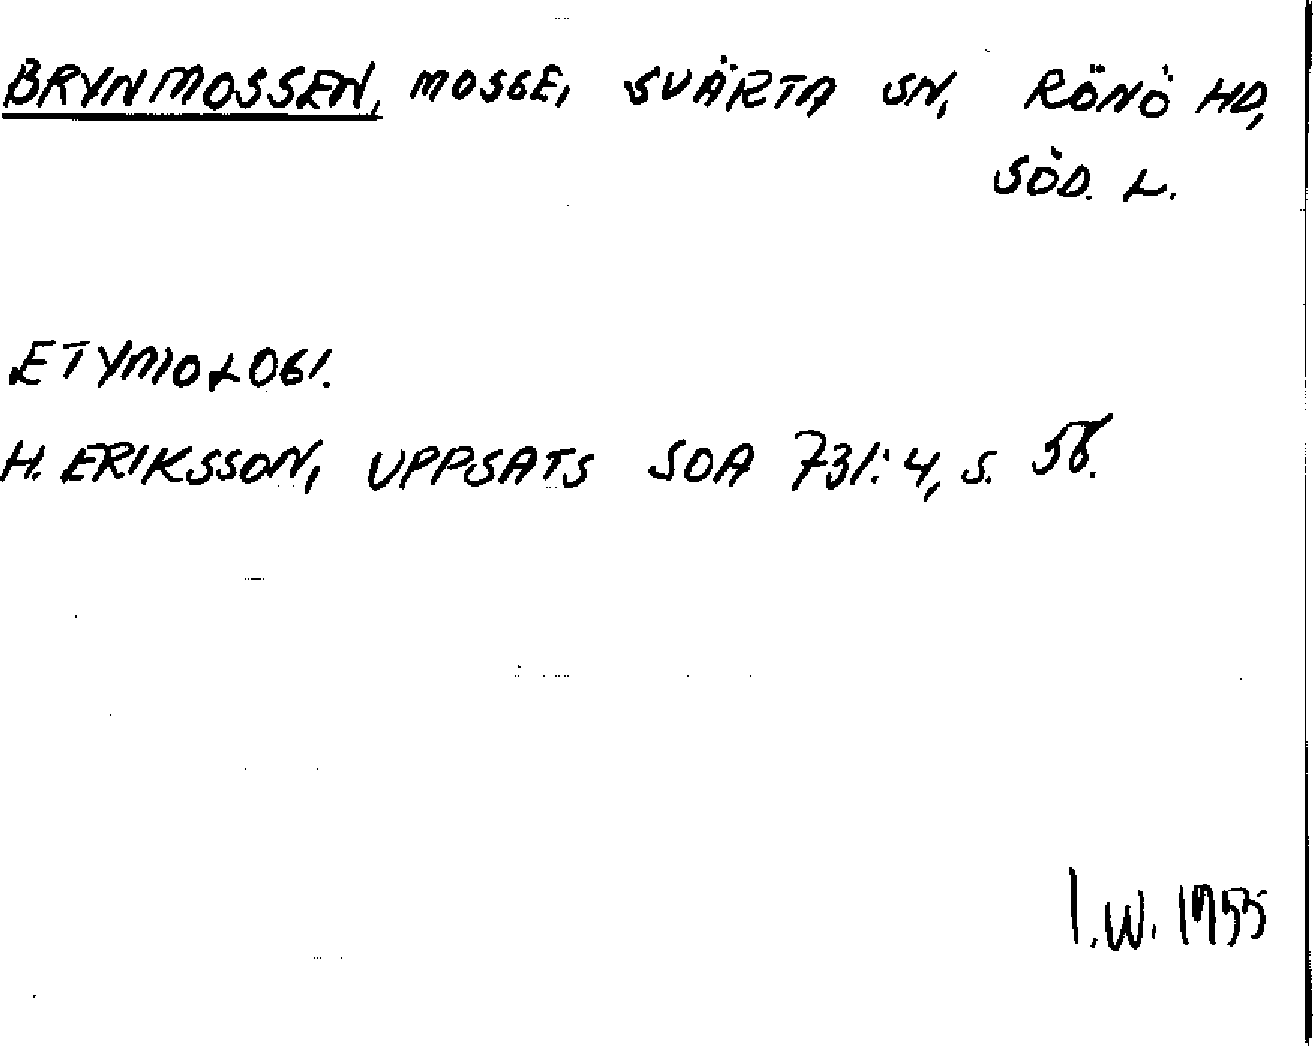 BRYNMOSSEN, MOSSE, SVÄRTA SN, RÖNÖ HD,
SÖD. L.
ETYMOLOGI.
H. ERIKSSON, UPPSATS SOA 731:4, S. 58.
I.W. 1955